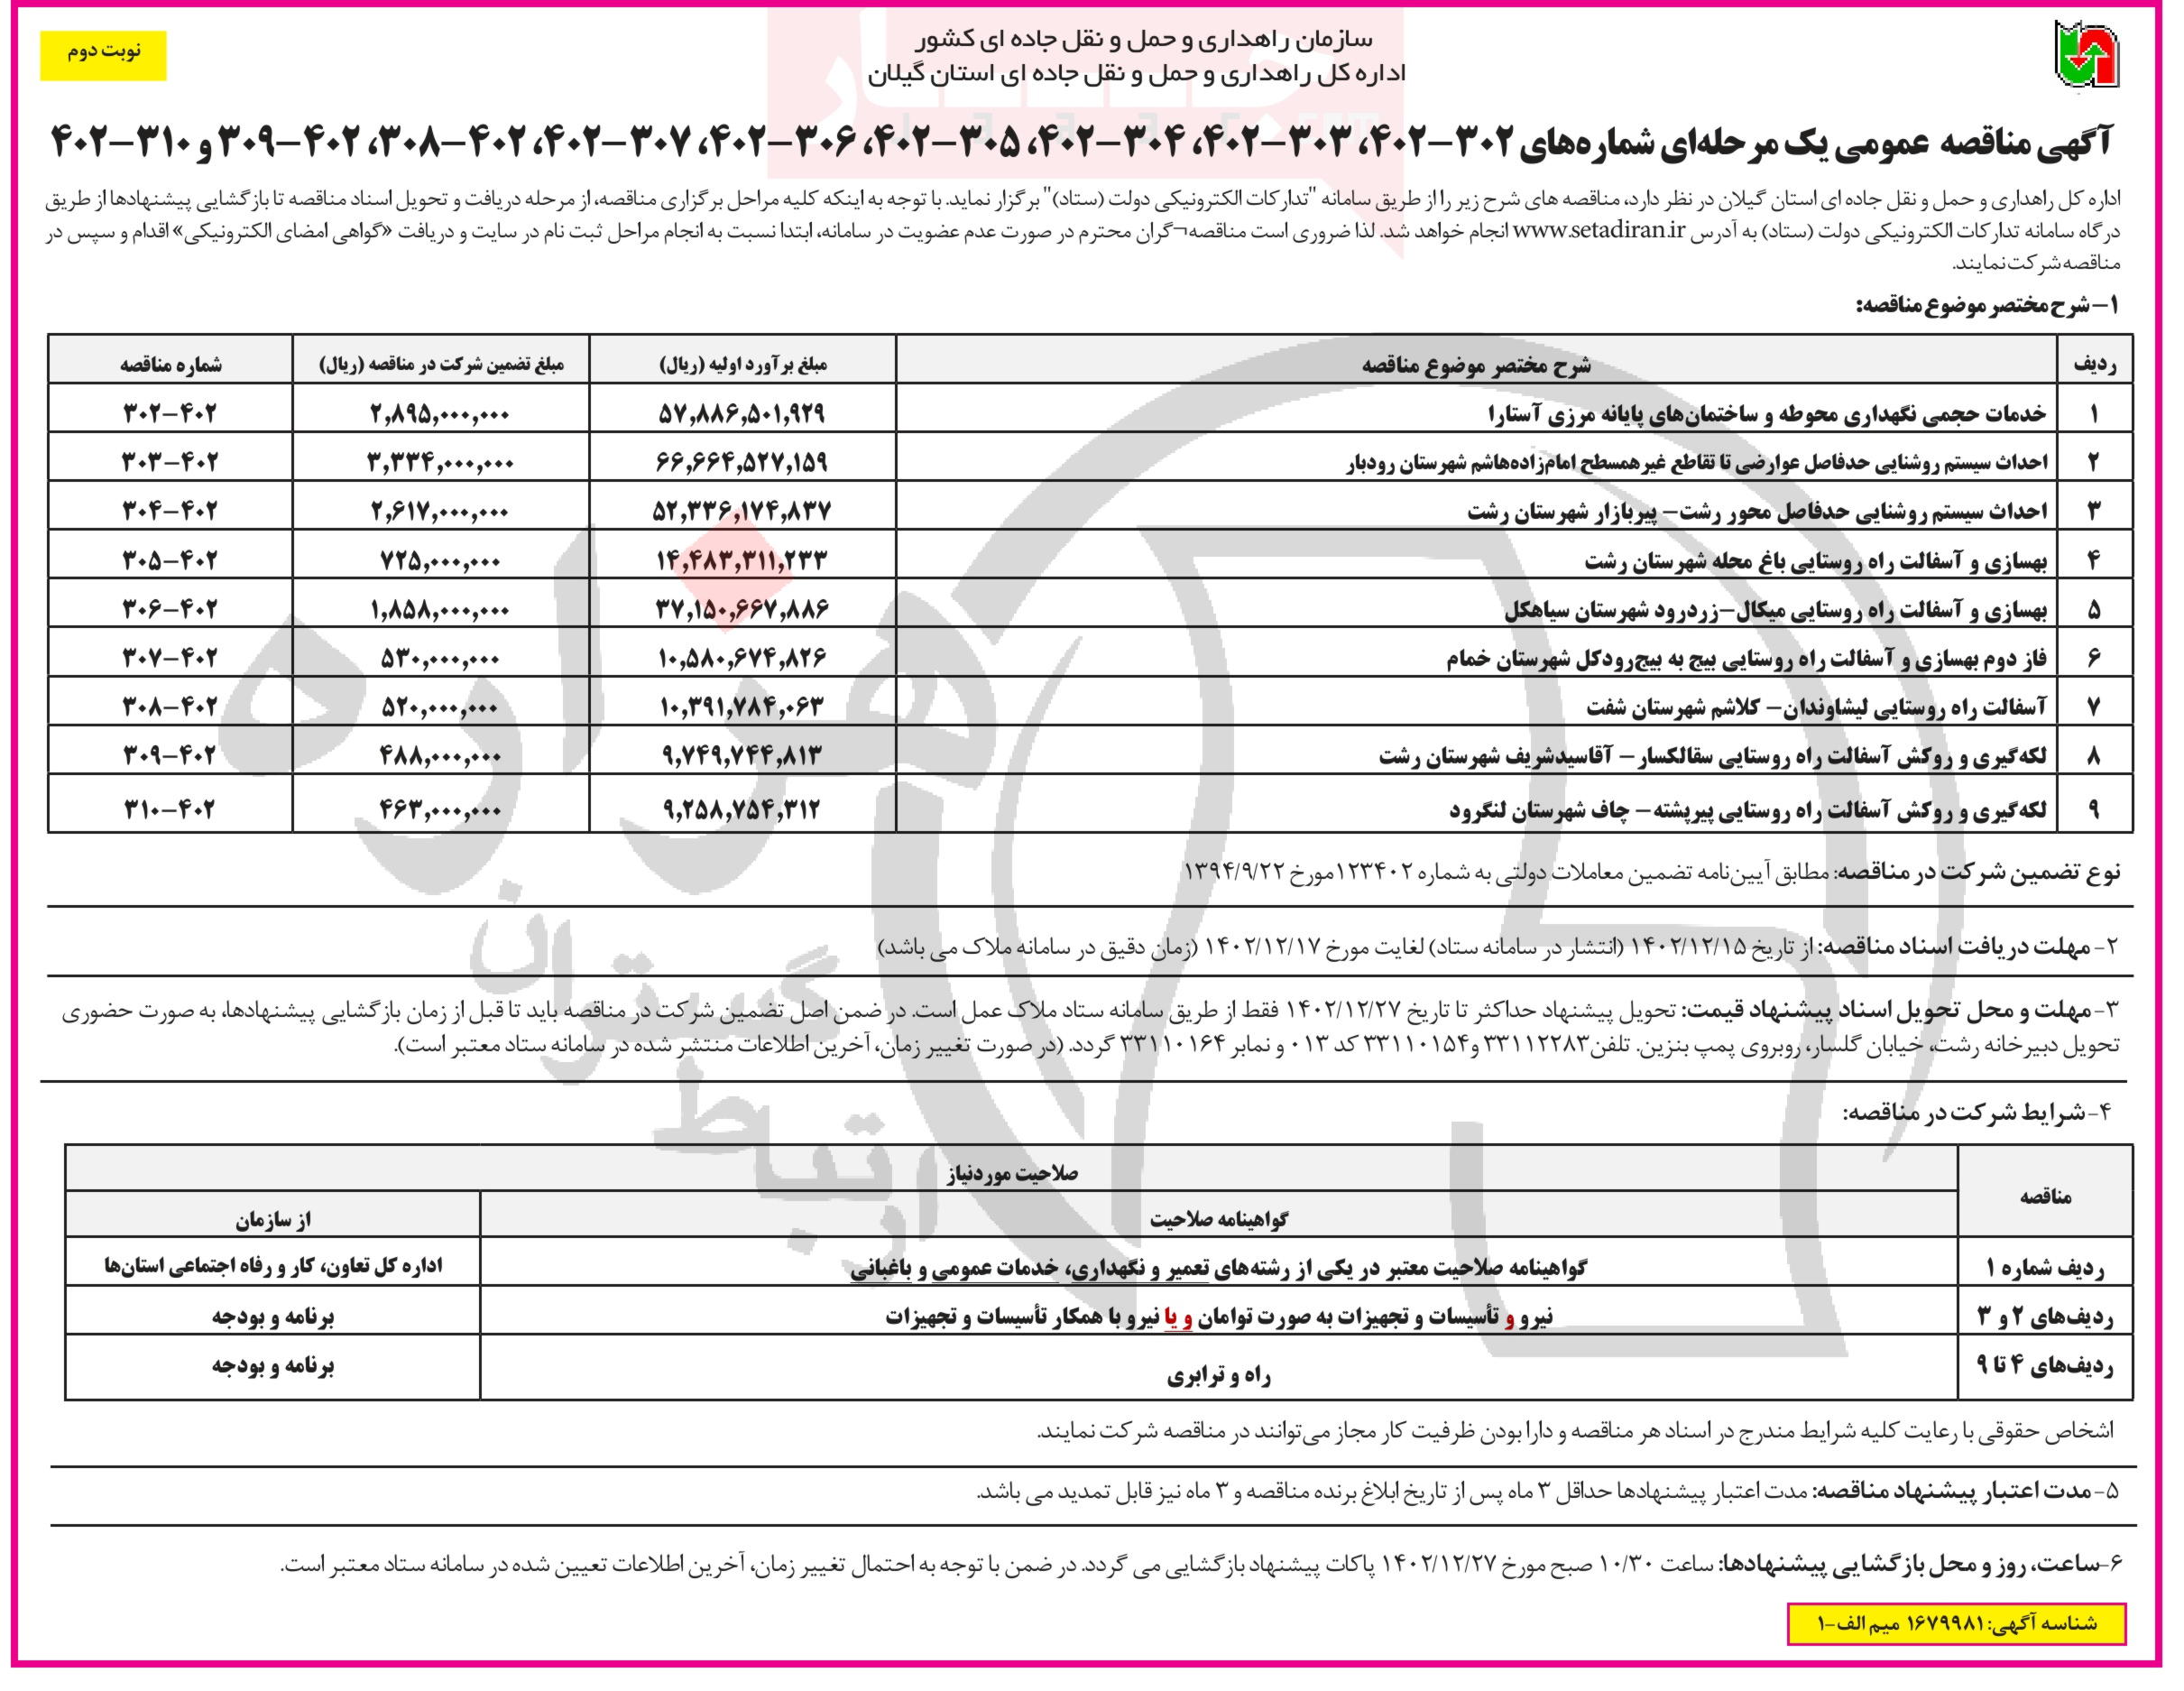 سازمان راهداری و حمل و نقل جاده ای کشور
اداره کل راهداری و حمل و نقل جاده ای استان گیلان
نوبت دوم
آگهی مناقصه عمومی یک مرحله‌ای شماره‌های ۳۰۲-۴۰۲، ۳۰۳-۴۰۲، ۳۰۴-۴۰۲، ۳۰۵-۴۰۲، ۳۰۶-۴۰۲، ۳۰۷-۴۰۲، ۴۰۲-۳۰۸، ۴۰۲-۳۰۹ و ۳۱۰-۴۰۲
اداره کل راهداری و حمل و نقل جاده ای استان گیلان در نظر دارد، مناقصه های شرح زیر را از طریق سامانه "تدارکات الکترونیکی دولت (ستاد)" برگزار نماید. با توجه به اینکه کلیه مراحل برگزاری مناقصه، از مرحله دریافت و تحویل اسناد مناقصه تا بازگشایی پیشنهادها از طریق
درگاه سامانه تدارکات الکترونیکی دولت (ستاد) به آدرس www.setadiran.ir انجام خواهد شد. لذا ضروری است مناقصه¬گران محترم در صورت عدم عضویت در سامانه، ابتدا نسبت به انجام مراحل ثبت نام در سایت و دریافت «گواهی امضای الکترونیکی» اقدام و سپس در
مناقصه شرکت نمایند.
۱- شرح مختصر موضوع مناقصه:
ردیف شرح مختصر موضوع مناقصه مبلغ برآورد اولیه (ریال) مبلغ تضمین شرکت در مناقصه (ریال) شماره مناقصه
۱ خدمات حجمی نگهداری محوطه و ساختمان‌های پایانه مرزی آستارا ۵۷,۸۸۶,۵۰۱,۹۲۹ ۲,۸۹۵,۰۰۰,۰۰۰ ۳۰۲-۴۰۲
۲ احداث سیستم روشنایی حدفاصل عوارضی تا تقاطع غیرهمسطح امامزاده‌هاشم شهرستان رودبار ۶۶,۶۶۴,۵۲۷,۱۵۹ ۳,۳۳۴,۰۰۰,۰۰۰ ۳۰۳-۴۰۲
۳ احداث سیستم روشنایی حدفاصل محور رشت- پیربازار شهرستان رشت ۵۲,۳۳۶,۱۷۴,۸۳۷ ۲,۶۱۷,۰۰۰,۰۰۰ ۳۰۴-۴۰۲
۴ بهسازی و آسفالت راه روستایی باغ محله شهرستان رشت ۱۴,۴۸۳,۳۱۱,۲۳۳ ۷۲۵,۰۰۰,۰۰۰ ۳۰۵-۴۰۲
۵ بهسازی و آسفالت راه روستایی میکال-زردرود شهرستان سیاهکل ۳۷,۱۵۰,۶۶۷,۸۸۶ ۱,۸۵۸,۰۰۰,۰۰۰ ۳۰۶-۴۰۲
۶ فاز دوم بهسازی و آسفالت راه روستایی بیج به بیج‌رودکل شهرستان خمام ۱۰,۵۸۰,۶۷۴,۸۲۶ ۵۳۰,۰۰۰,۰۰۰ ۳۰۷-۴۰۲
۷ آسفالت راه روستایی لیشاوندان- کلاشم شهرستان شفت ۱۰,۳۹۱,۷۸۴,۰۶۳ ۵۲۰,۰۰۰,۰۰۰ ۳۰۸-۴۰۲
۸ لکه‌گیری و روکش آسفالت راه روستایی سقالکسار- آقاسیدشریف شهرستان رشت ۹,۷۴۹,۷۴۴,۸۱۳ ۴۸۸,۰۰۰,۰۰۰ ۳۰۹-۴۰۲
۹ لکه‌گیری و روکش آسفالت راه روستایی پیرپشته- چاف شهرستان لنگرود ۹,۲۵۸,۷۵۴,۳۱۲ ۴۶۳,۰۰۰,۰۰۰ ۳۱۰-۴۰۲
نوع تضمین شرکت در مناقصه: مطابق آیین‌نامه تضمین معاملات دولتی به شماره ۱۲۳۴۰۲مورخ ۱۳۹۴/۹/۲۲
۲- مهلت دریافت اسناد مناقصه: از تاریخ ۱۴۰۲/۱۲/۱۵ (انتشار در سامانه ستاد) لغایت مورخ ۱۴۰۲/۱۲/۱۷ (زمان دقیق در سامانه ملاک می باشد)
۳- مهلت و محل تحویل اسناد پیشنهاد قیمت: تحویل پیشنهاد حداکثر تا تاریخ ۱۴۰۲/۱۲/۲۷ فقط از طریق سامانه ستاد ملاک عمل است. در ضمن اصل تضمین شرکت در مناقصه باید تا قبل از زمان بازگشایی پیشنهادها، به صورت حضوری
تحویل دبیرخانه رشت، خیابان گلسار، روبروی پمپ بنزین. تلفن۳۳۱۱۲۲۸۳ و۳۳۱۱۰۱۵۴ کد ۰۱۳ و نمابر ۳۳۱۱۰۱۶۴ گردد. (در صورت تغییر زمان، آخرین اطلاعات منتشر شده در سامانه ستاد معتبر است).
۴- شرایط شرکت در مناقصه:
مناقصه صلاحیت موردنیاز
گواهینامه صلاحیت از سازمان
ردیف شماره ۱ گواهینامه صلاحیت معتبر در یکی از رشته‌های تعمیر و نگهداری، خدمات عمومی و باغبانی اداره کل تعاون، کار و رفاه اجتماعی استان‌ها
ردیف‌های ۲ و ۳ نیرو و تأسیسات و تجهیزات به صورت توامان و یا نیرو با همکار تأسیسات و تجهیزات برنامه و بودجه
ردیف‌های ۴ تا ۹ راه و ترابری برنامه و بودجه
اشخاص حقوقی با رعایت کلیه شرایط مندرج در اسناد هر مناقصه و دارا بودن ظرفیت کار مجاز می‌توانند در مناقصه شرکت نمایند.
۵- مدت اعتبار پیشنهاد مناقصه: مدت اعتبار پیشنهادها حداقل ۳ ماه پس از تاریخ ابلاغ برنده مناقصه و ۳ ماه نیز قابل تمدید می باشد.
۶-ساعت، روز و محل بازگشایی پیشنهادها: ساعت ۱۰/۳۰ صبح مورخ ۱۴۰۲/۱۲/۲۷ پاکات پیشنهاد بازگشایی می گردد. در ضمن با توجه به احتمال تغییر زمان، آخرین اطلاعات تعیین شده در سامانه ستاد معتبر است.
شناسه آگهی: ۱۶۷۹۹۸۱ میم الف-۱
هزاره
گستران
ارتباط